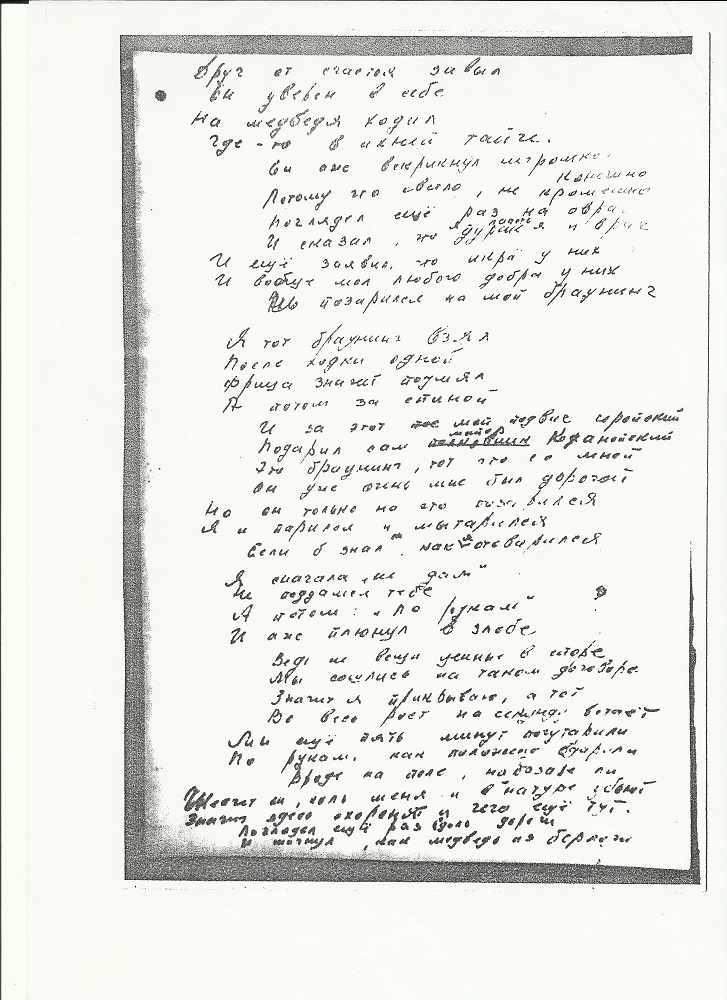 Друг от счастья завыл
Он уверен в себе
На медведя ходил
Где-то в ихней тайге.
Он аж вскрикнул негромко
Конечно
Потому что светло, не кромешно
Поглядел ещё раз на овраг
И сказал, что я лапоть дурак и враг
И ещё заявил, что икра у них
И вообще мол любого добра у них
Но позарился на мой браунинг
Я тот браунинг взял
После ходки одной
Фрица значит подмял
А потом за спиной
И за этот мой подвиг геройский
Подарил сам майор Кофанойский
Это браунинг, тот что со мной
Он уже очень мне был дорогой
Но он только на это позарился
Я и парился и мытарился
Если б знал, как я отоварился
Я сначала „не дам"
Не поддамся тебе
А потом: „По рукам"
И аж плюнул в злобе
Ведь не вещи ценные в споре
Мы сошлись на таком договоре
Значит я прикрываю, а тот
Во весь рост на секунду встаёт
Мы ещё пять минут погутарили
По рукам, как положено ударили
Вроде на поле, на базаре ли
Шепчет он, коль меня и в натуре убьют
Значит здесь схоронят и чего ещё тут.
Поглядел ещё раз вдоль дороги
И шагнул, как медведь из берлоги